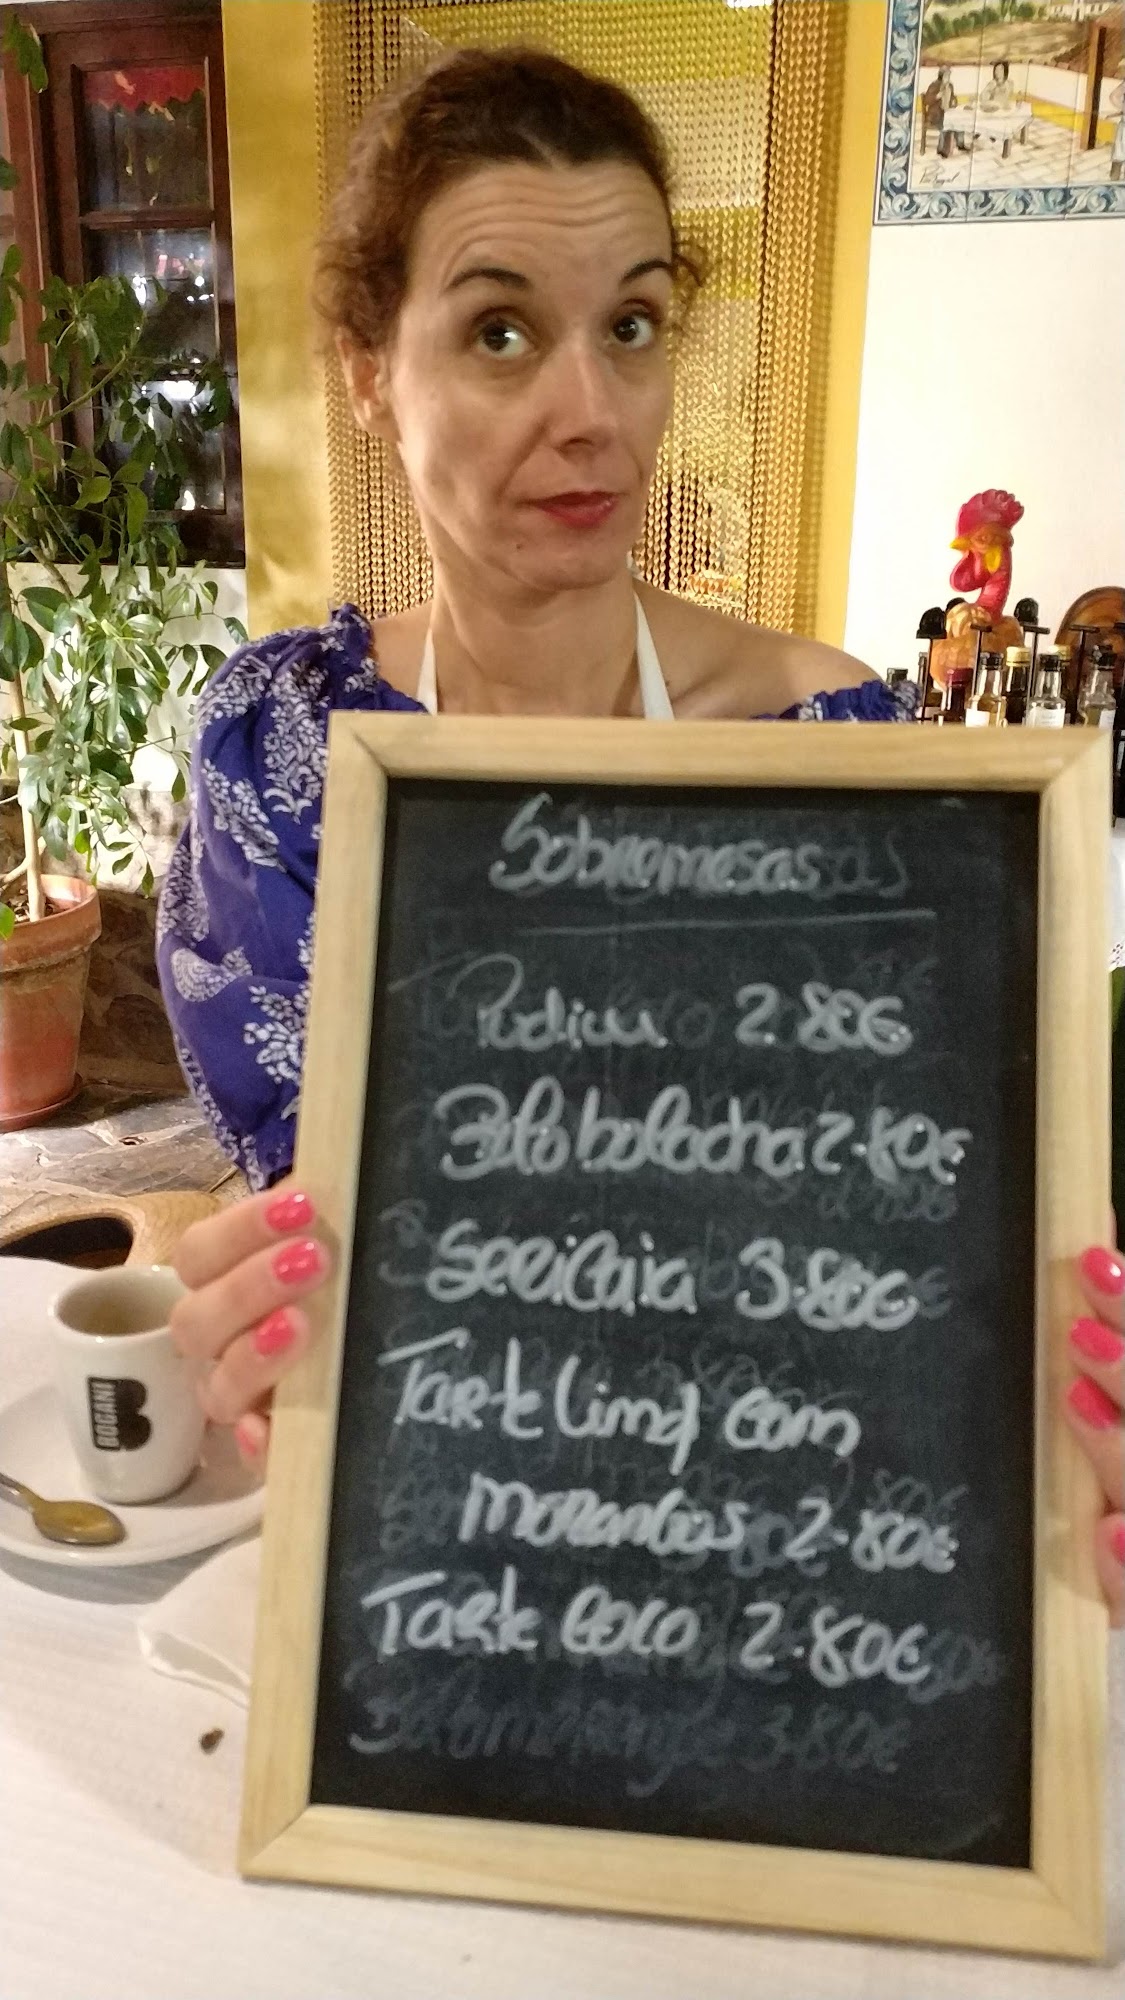 Sobremesas
Pudim 2.80€
Bolo bolacha 2.80€
Sericaia 3.80€
Tarte limã com
morangos 2.80€
Tarte coco 2.80€
3.80€
BOGANI